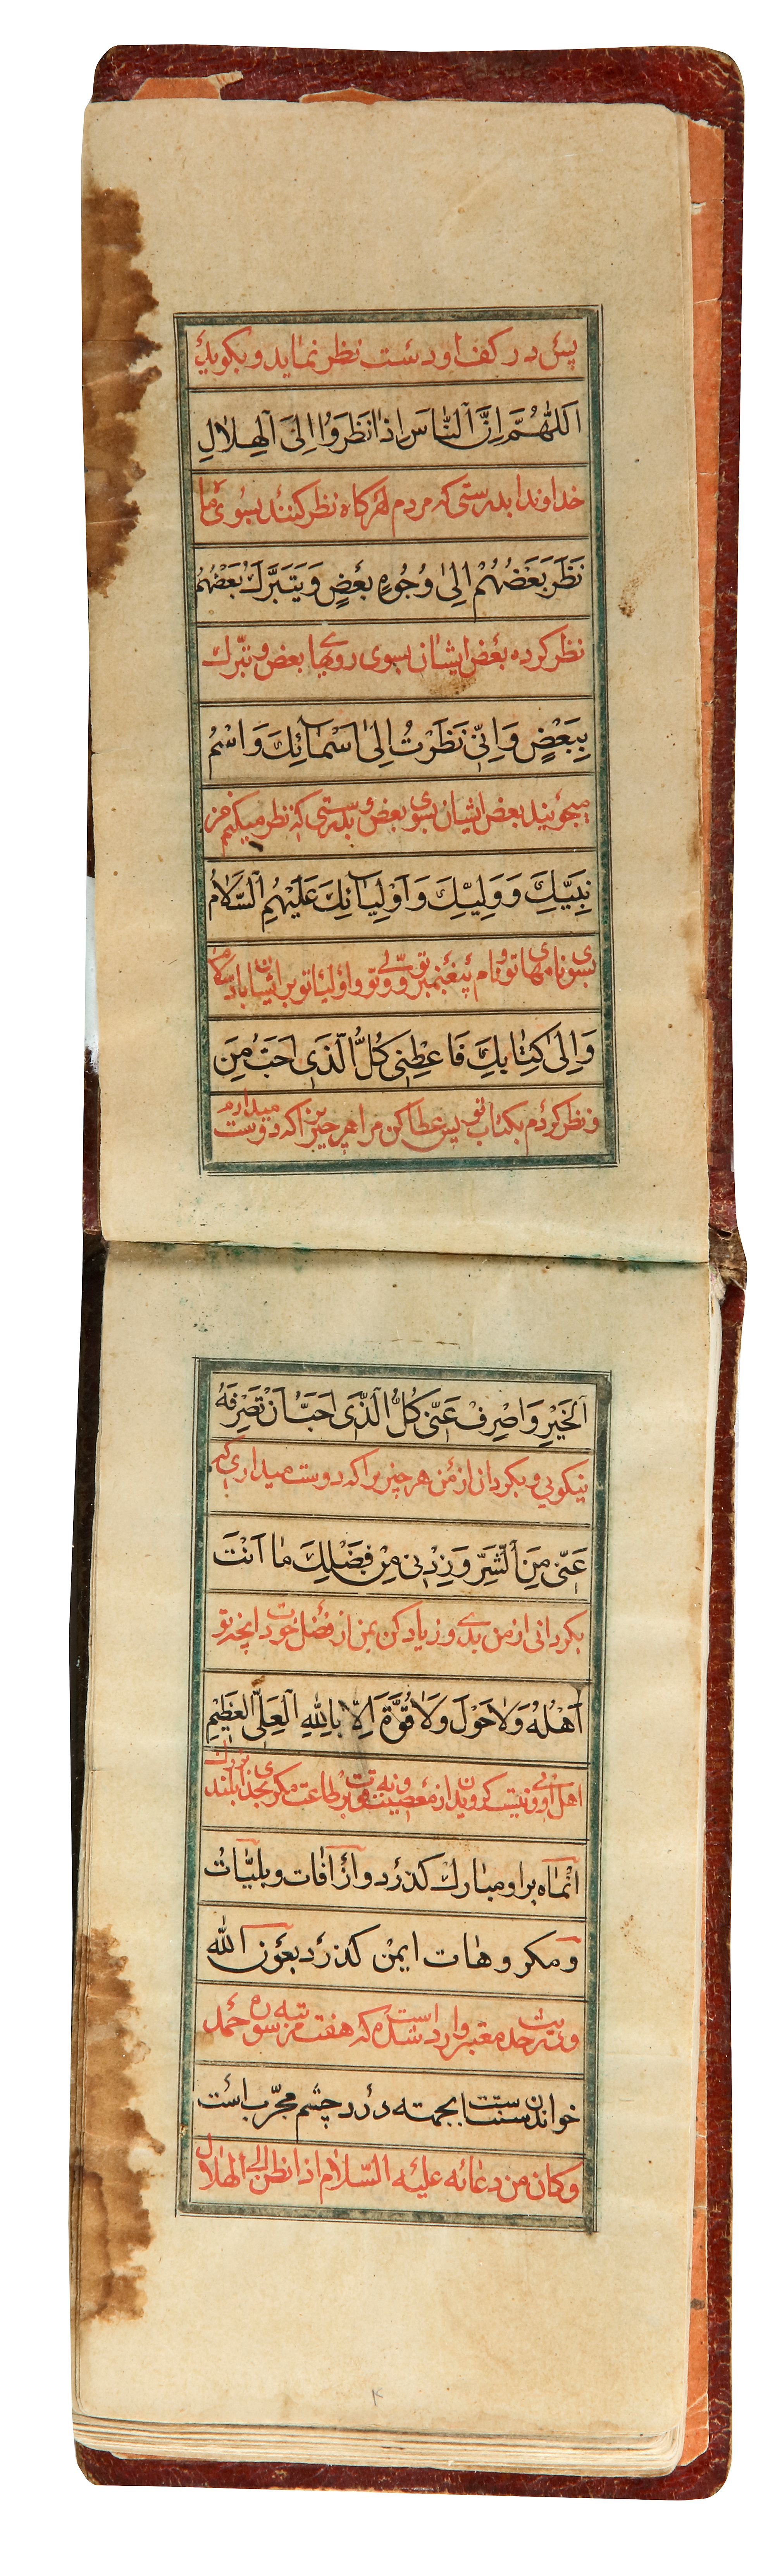 پس در کف او دست نظر نماید و بکوید
اَللّٰهُمَّ اِنَّ النّٰاسَ اِذٰا نَظَرُوا اِلَی الْهِلٰالِ
خداوندا بدرستی که مردم هرکاه نظر کنند بسوی ما
نَظَرَ بَعْضُهُمْ اِلیٰ وُجُوهِ بَعْضٍ وَیَتَبَرَّكُ بَعْضُهُمْ
نظر کرده بعض ایشان بسوی رویهای بعض و تبرك
بِبَعْضٍ وَاِنّی نَظَرْتُ اِلیٰ اَسْمٰآئِكَ وَاسْمُ
میجویند بعض ایشان بسوی بعض و بدرستی که نظر میکنم من
نَبِیِّكَ وَوَلِیِّكَ وَاَوْلِیٰآئِكَ عَلَیْهِمِ السَّلاٰمُ
بسوی نامهای تو و نام پیغمبر تو و ولی تو و اولیا تو بر ایشان باد سلام
وَاِلیٰ كِتٰابِكَ فَاعْطِنی كُلَّ الَّذی اُحَبُّ مِنَ
و نظر کردم بکتاب تو پس عطا کن مرا هر چیزیرا که دوست میدارم
اَلْخَیْرِ وَاصْرِفْ عَنّی كُلَّ الَّذی اُحَبُّ اَنْ تَصْرِفَهُ
نیکویی و بکردان از من هر چیز را که دوست میداری که
عَنّی مِنَ الشَّرِّ وَزِدْنی مِنْ فَضْلِكَ مٰا اَنْتَ
بکردانی از من بدی و زیاد کن بمن از فضل خود انچه تو
اَهْلُهُ وَلاٰ حَوْلَ وَلاٰ قُوَّةَ اِلّٰا بِاللّٰهِ الْعَلِیِّ الْعَظِیْمِ
اهل اویی و نیست کردیدن از معصیت و نه قوت بر طاعت مکر بخدای بلند بزرك
انماه بر او مبارك کذرد و از آفات و بلیّات
و مکروهات ایمن کذرد بعون الله
و در حدیث معتبر وارد شده است که هفت مرتبه سوره حمد
خواندن سنت است بجهته درد چشم مجرّب است
وکان من دعائه علیه السّلام اذا نظر الی الهلال